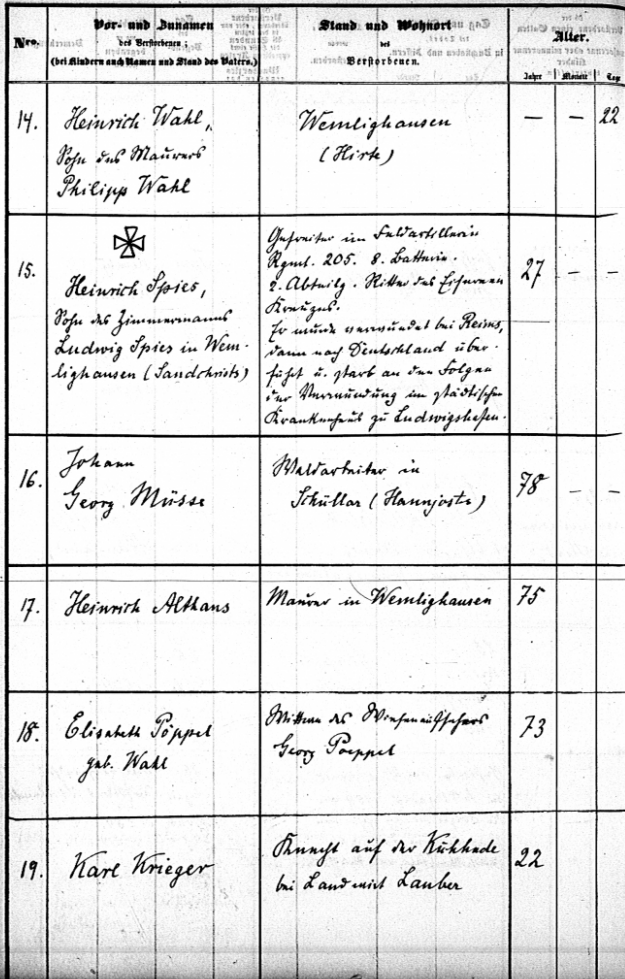 Nro.
Vor- und Zunamen
des Verstorbenen
(bei Kindern auch Namen und Stand des Vaters.)
Stand und Wohnort
des
Verstorbenen.
Alter.
Jahre Monate Tage
14.
Heinrich Wahl,
Sohn des Maurers
Philipp Wahl
Wemlighausen
(Hirte)
— — 22
15.
Heinrich Spies,
Sohn des Zimmermanns
Ludwig Spies in Wem-
lighausen (Sandchrists)
Gefreiter im Feldartillerie
Rgmt. 205. 8. Batterie.
2. Abteilg. Ritter des Eisernen
Kreuzes.
Er wurde verwundet bei Reims,
dann nach Deutschland über-
führt u. starb an den Folgen
der Verwundung im städtischen
Krankenhaus zu Ludwigshafen.
27 — —
16.
Johann
Georg Müsse
Waldarbeiter in
Schüllar (Hannjosts)
78 — —
17.
Heinrich Althaus
Maurer in Wemlighausen
75
18.
Elisabeth Pöppel
geb. Wahl
Wittwe des Wiesenaufsehers
Georg Poeppel
73
19.
Karl Krieger
Knecht auf der
bei Landwirt Lauber
22